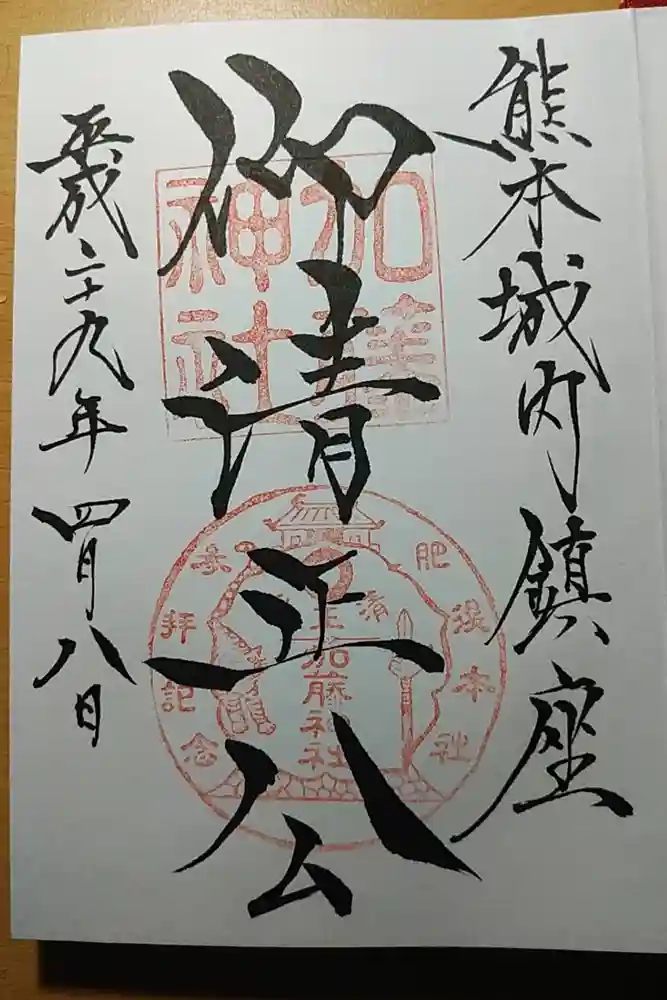 熊本城内鎮座
仰清正公
平成二十九年四月八日
加藤
神社
肥後本社
参拝記念
清正公
加藤神社